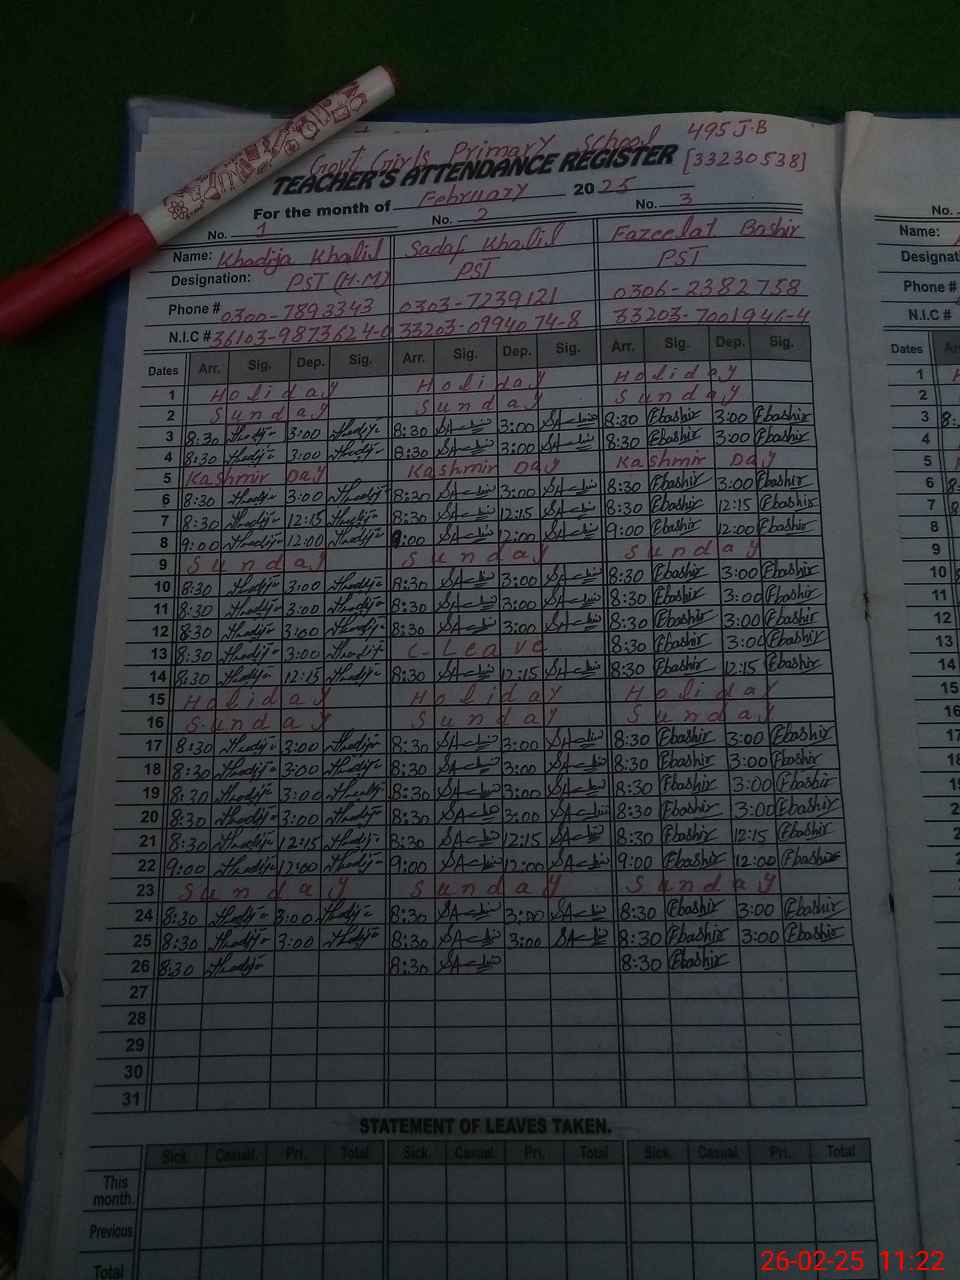 Govt Girls Primary School 495 J-B
TEACHER'S ATTENDANCE REGISTER [33230538]
For the month of February 2025
No. 1 No. 2 No. 3 No.
Name: Khadija Khalil Sadaf Khalil Fazeelat Bashir Name:
Designation: PST (H.M) PST PST
Phone # 0300-7893343 0303-7239121 0306-2382758 Phone #
N.I.C # 36103-9873624-0 33203-0994074-8 33203-7001946-4 N.I.C #
Dates Arr. Sig. Dep. Sig. Arr. Sig. Dep. Sig. Arr. Sig. Dep. Sig. Dates
1 Holiday Holiday Holiday 1
2 Sunday Sunday Sunday 2
3 8:30 3:00 8:30 3:00 8:30 Fbashir 3:00 Fbashir 3
4 8:30 3:00 8:30 3:00 8:30 Fbashir 3:00 Fbashir 4
5 Kashmir Day Kashmir Day Kashmir Day 5
6 8:30 3:00 8:30 3:00 8:30 Fbashir 3:00 Fbashir 6
7 8:30 12:15 8:30 12:15 8:30 Fbashir 12:15 Fbashir 7
8 9:00 12:00 9:00 12:00 9:00 Fbashir 12:00 Fbashir 8
9 Sunday Sunday Sunday 9
10 8:30 3:00 8:30 3:00 8:30 Fbashir 3:00 Fbashir 10
11 8:30 3:00 8:30 3:00 8:30 Fbashir 3:00 Fbashir 11
12 8:30 3:00 8:30 3:00 8:30 Fbashir 3:00 Fbashir 12
13 8:30 3:00 C-Leave 8:30 Fbashir 3:00 Fbashir 13
14 8:30 12:15 8:30 12:15 8:30 Fbashir 12:15 Fbashir 14
15 Holiday Holiday Holiday 15
16 Sunday Sunday Sunday 16
17 8:30 3:00 8:30 3:00 8:30 Fbashir 3:00 Fbashir 17
18 8:30 3:00 8:30 3:00 8:30 Fbashir 3:00 Fbashir 18
19 8:30 3:00 8:30 3:00 8:30 Fbashir 3:00 Fbashir 19
20 8:30 3:00 8:30 3:00 8:30 Fbashir 3:00 Fbashir
21 8:30 12:15 8:30 12:15 8:30 Fbashir 12:15 Fbashir
22 9:00 12:00 9:00 12:00 9:00 Fbashir 12:00 Fbashir
23 Sunday Sunday Sunday
24 8:30 3:00 8:30 3:00 8:30 Fbashir 3:00 Fbashir
25 8:30 3:00 8:30 3:00 8:30 Fbashir 3:00 Fbashir
26 8:30 8:30 8:30 Fbashir
27
28
29
30
31
STATEMENT OF LEAVES TAKEN.
Sick. Casual. Pri. Total Sick. Casual Pri. Total Sick. Casual Pri. Total
This
month.
Previous
Total
26-02-25 11:22